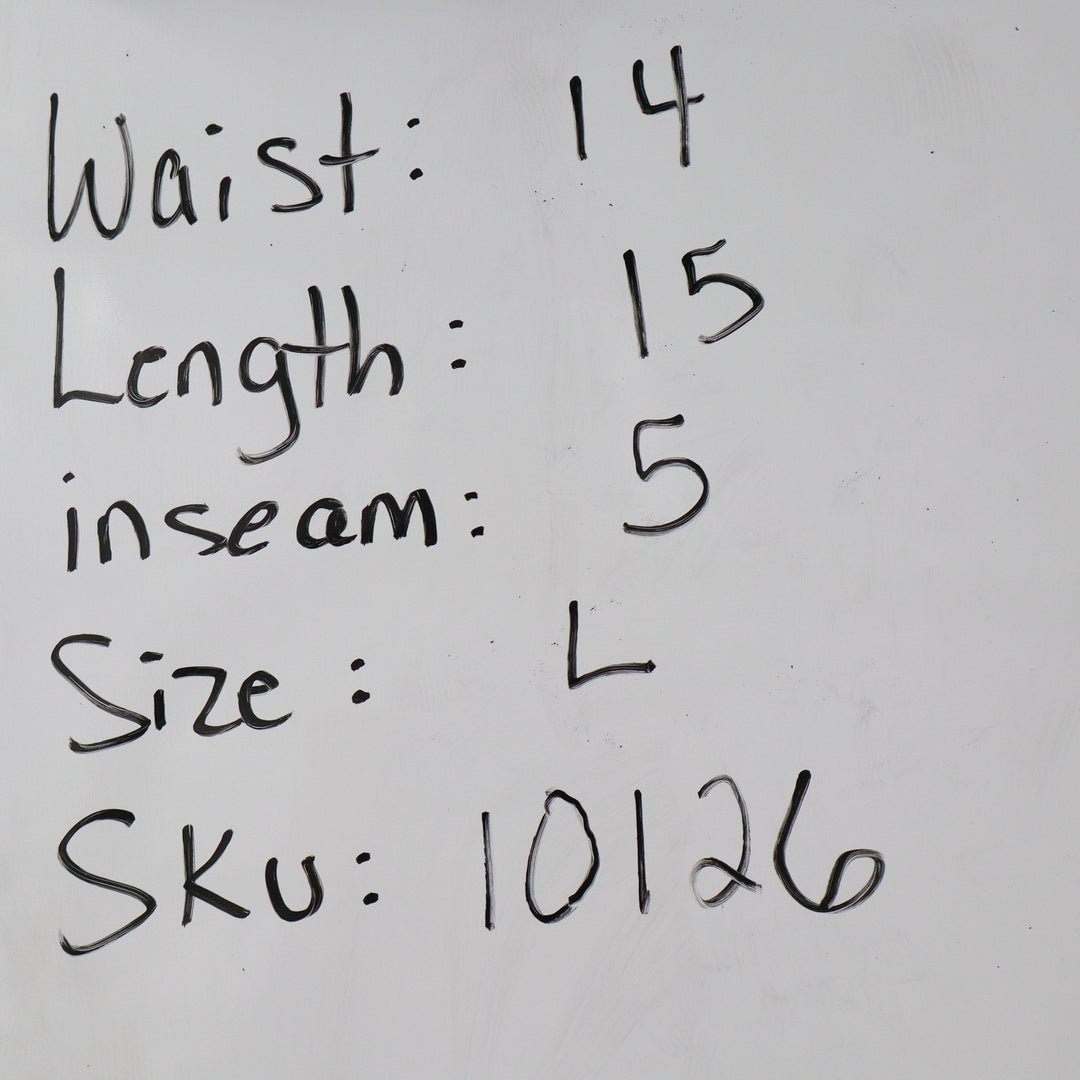 Waist: 14
Length: 15
inseam: 5
Size: L
SKU: 10126